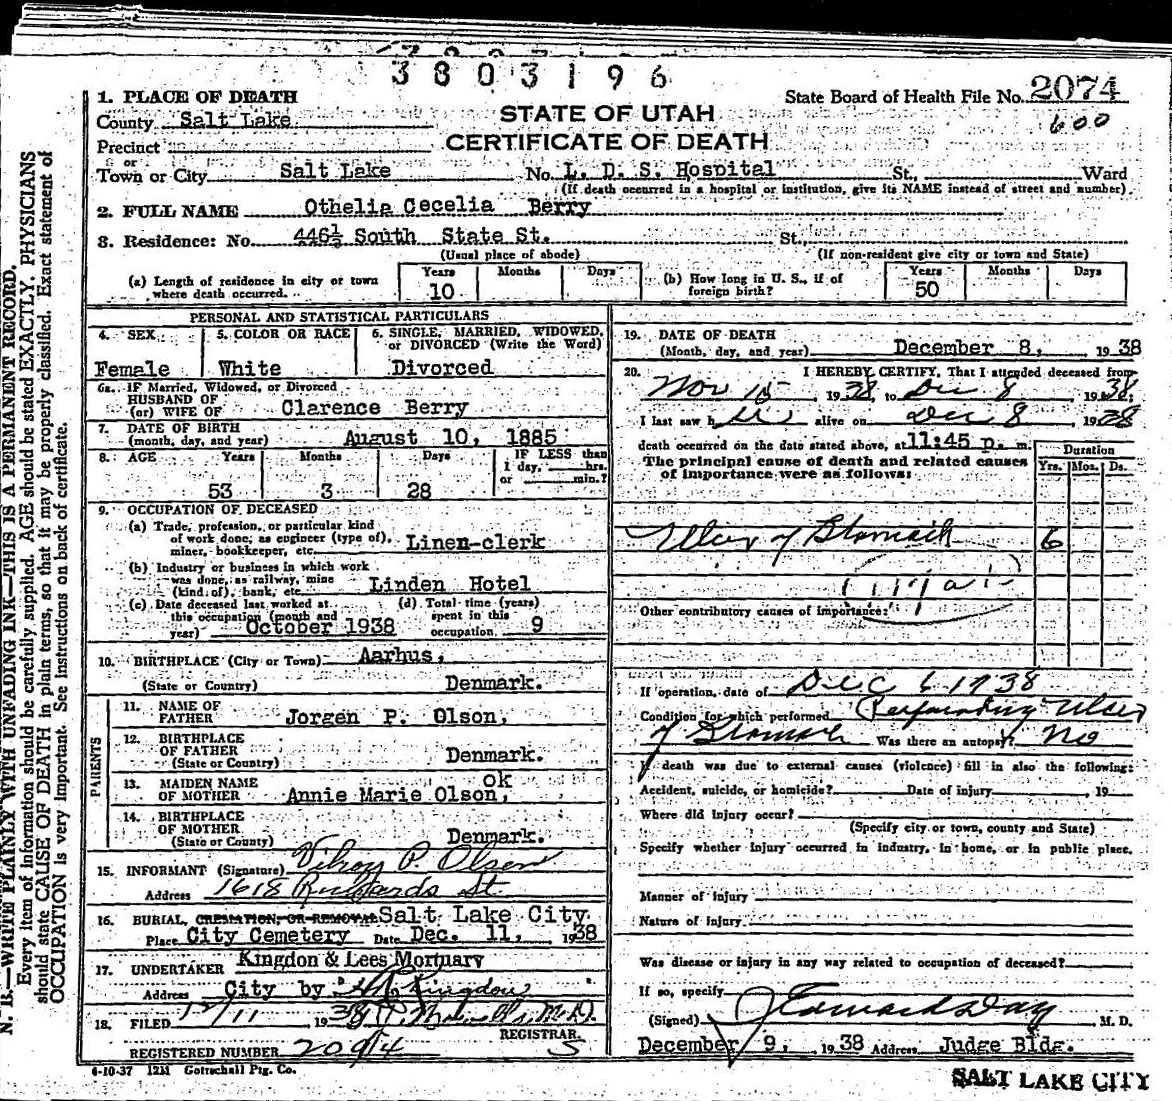 3803196
1. PLACE OF DEATH
State Board of Health File No. 2074
600
County Salt Lake
STATE OF UTAH
CERTIFICATE OF DEATH
Precinct
or
Town or City Salt Lake No. L. D. S. Hospital St., Ward
(If death occurred in a hospital or institution, give its NAME instead of street and number)
2. FULL NAME Othelia Cecelia Berry
3. Residence: No. 446½ South State St. St.,
(Usual place of abode) (If non-resident give city or town and State)
(a) Length of residence in city or town where death occurred. Years 10 Months Days
(b) How long in U. S., if of foreign birth? Years 50 Months Days
PERSONAL AND STATISTICAL PARTICULARS
4. SEX Female
5. COLOR OR RACE White
6. SINGLE, MARRIED, WIDOWED, or DIVORCED (Write the Word) Divorced
6a. IF Married, Widowed, or Divorced
HUSBAND OF
(or) WIFE OF Clarence Berry
7. DATE OF BIRTH
(month, day, and year) August 10, 1885
8. AGE Years 53 Months 3 Days 28
IF LESS than 1 day, hrs. or min.?
9. OCCUPATION OF DECEASED
(a) Trade, profession, or particular kind
of work done; as engineer (type of),
miner, bookkeeper, etc. Linen-clerk
(b) Industry or business in which work
was done, as railway, mine
(kind of), bank, etc. Linden Hotel
(c) Date deceased last worked at
this occupation (month and
year) October 1938
(d) Total time (years)
spent in this
occupation. 9
10. BIRTHPLACE (City or Town) Aarhus,
(State or Country) Denmark.
PARENTS
11. NAME OF
FATHER Jorgen P. Olson,
12. BIRTHPLACE
OF FATHER
(State or Country) Denmark.
13. MAIDEN NAME ok
OF MOTHER Annie Marie Olson,
14. BIRTHPLACE
OF MOTHER
(State or County) Denmark.
15. INFORMANT (Signature) Vilroy P. Olsen
Address 1618 Richards St
16. BURIAL, CREMATION, OR REMOVAL Salt Lake City
Place City Cemetery Date Dec. 11, 1938
17. UNDERTAKER Kingdon & Lees Mortuary
Address City by Kingdon
18. FILED 12/11 1938 M.D.
REGISTRAR
REGISTERED NUMBER 2094 S
6-10-37 12M Gottschall Ptg. Co.
19. DATE OF DEATH
(Month, day, and year) December 8, 1938
20. I HEREBY CERTIFY, That I attended deceased from
Nov 15 1938, to Dec 8 1938;
I last saw her alive on Dec 8 1938
death occurred on the date stated above, at 11:45 p. m.
The principal cause of death and related causes
of importance were as follows:
Duration
Yrs. Mos. Ds.
Ulcer of Stomach 6
117a
Other contributory causes of importance:
If operation, date of Dec 6 1938
Condition for which performed Perforating Ulcer
of Stomach Was there an autopsy? No
If death was due to external causes (violence) fill in also the following:
Accident, suicide, or homicide? Date of injury , 19
Where did injury occur?
(Specify city or town, county and State)
Specify whether injury occurred in industry, in home, or in public place.
Manner of injury
Nature of injury
Was disease or injury in any way related to occupation of deceased?
If so, specify
(Signed) Day M. D.
December 9, 1938 Address Judge Bldg.
SALT LAKE CITY
N. B.—WRITE PLAINLY WITH UNFADING INK—THIS IS A PERMANENT RECORD.
Every item of information should be carefully supplied. AGE should be stated EXACTLY. PHYSICIANS
should state CAUSE OF DEATH in plain terms, so that it may be properly classified. Exact statement of
OCCUPATION is very important. See instructions on back of certificate.